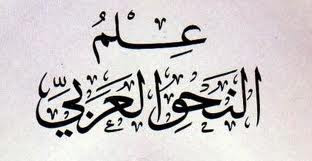 عِلْمُ
النَّحْوِ الْعَرَبِيِّ